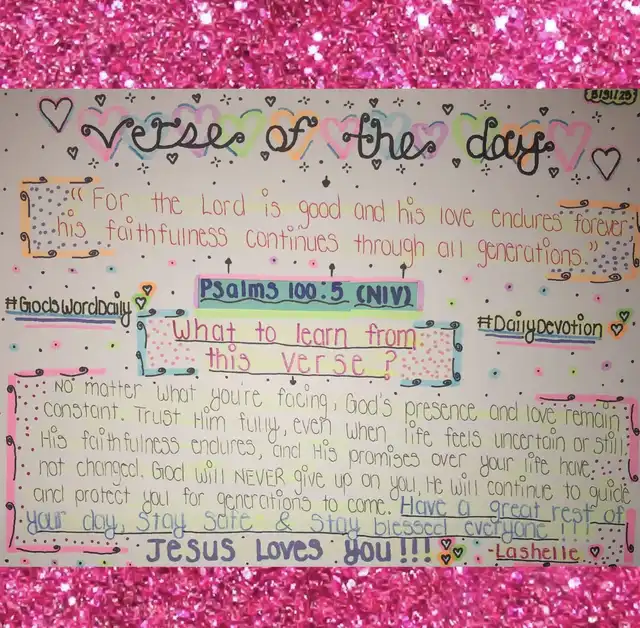 8/31/25
verse of the day
"For the Lord is good and his love endures forever;
his faithfulness continues through all generations."
Psalms 100:5 (NIV)
#GodsWordDaily
#DailyDevotion
What to learn from
this verse?
No matter what you're facing, God's presence and love remain
constant. Trust Him fully, even when life feels uncertain or still.
His faithfulness endures, and His promises over your life have
not changed. God will NEVER give up on you. He will continue to guide
and protect you for generations to come. Have a great rest of
your day, Stay Safe & Stay blessed everyone!!!
Jesus Loves You!!!
-Lashelle